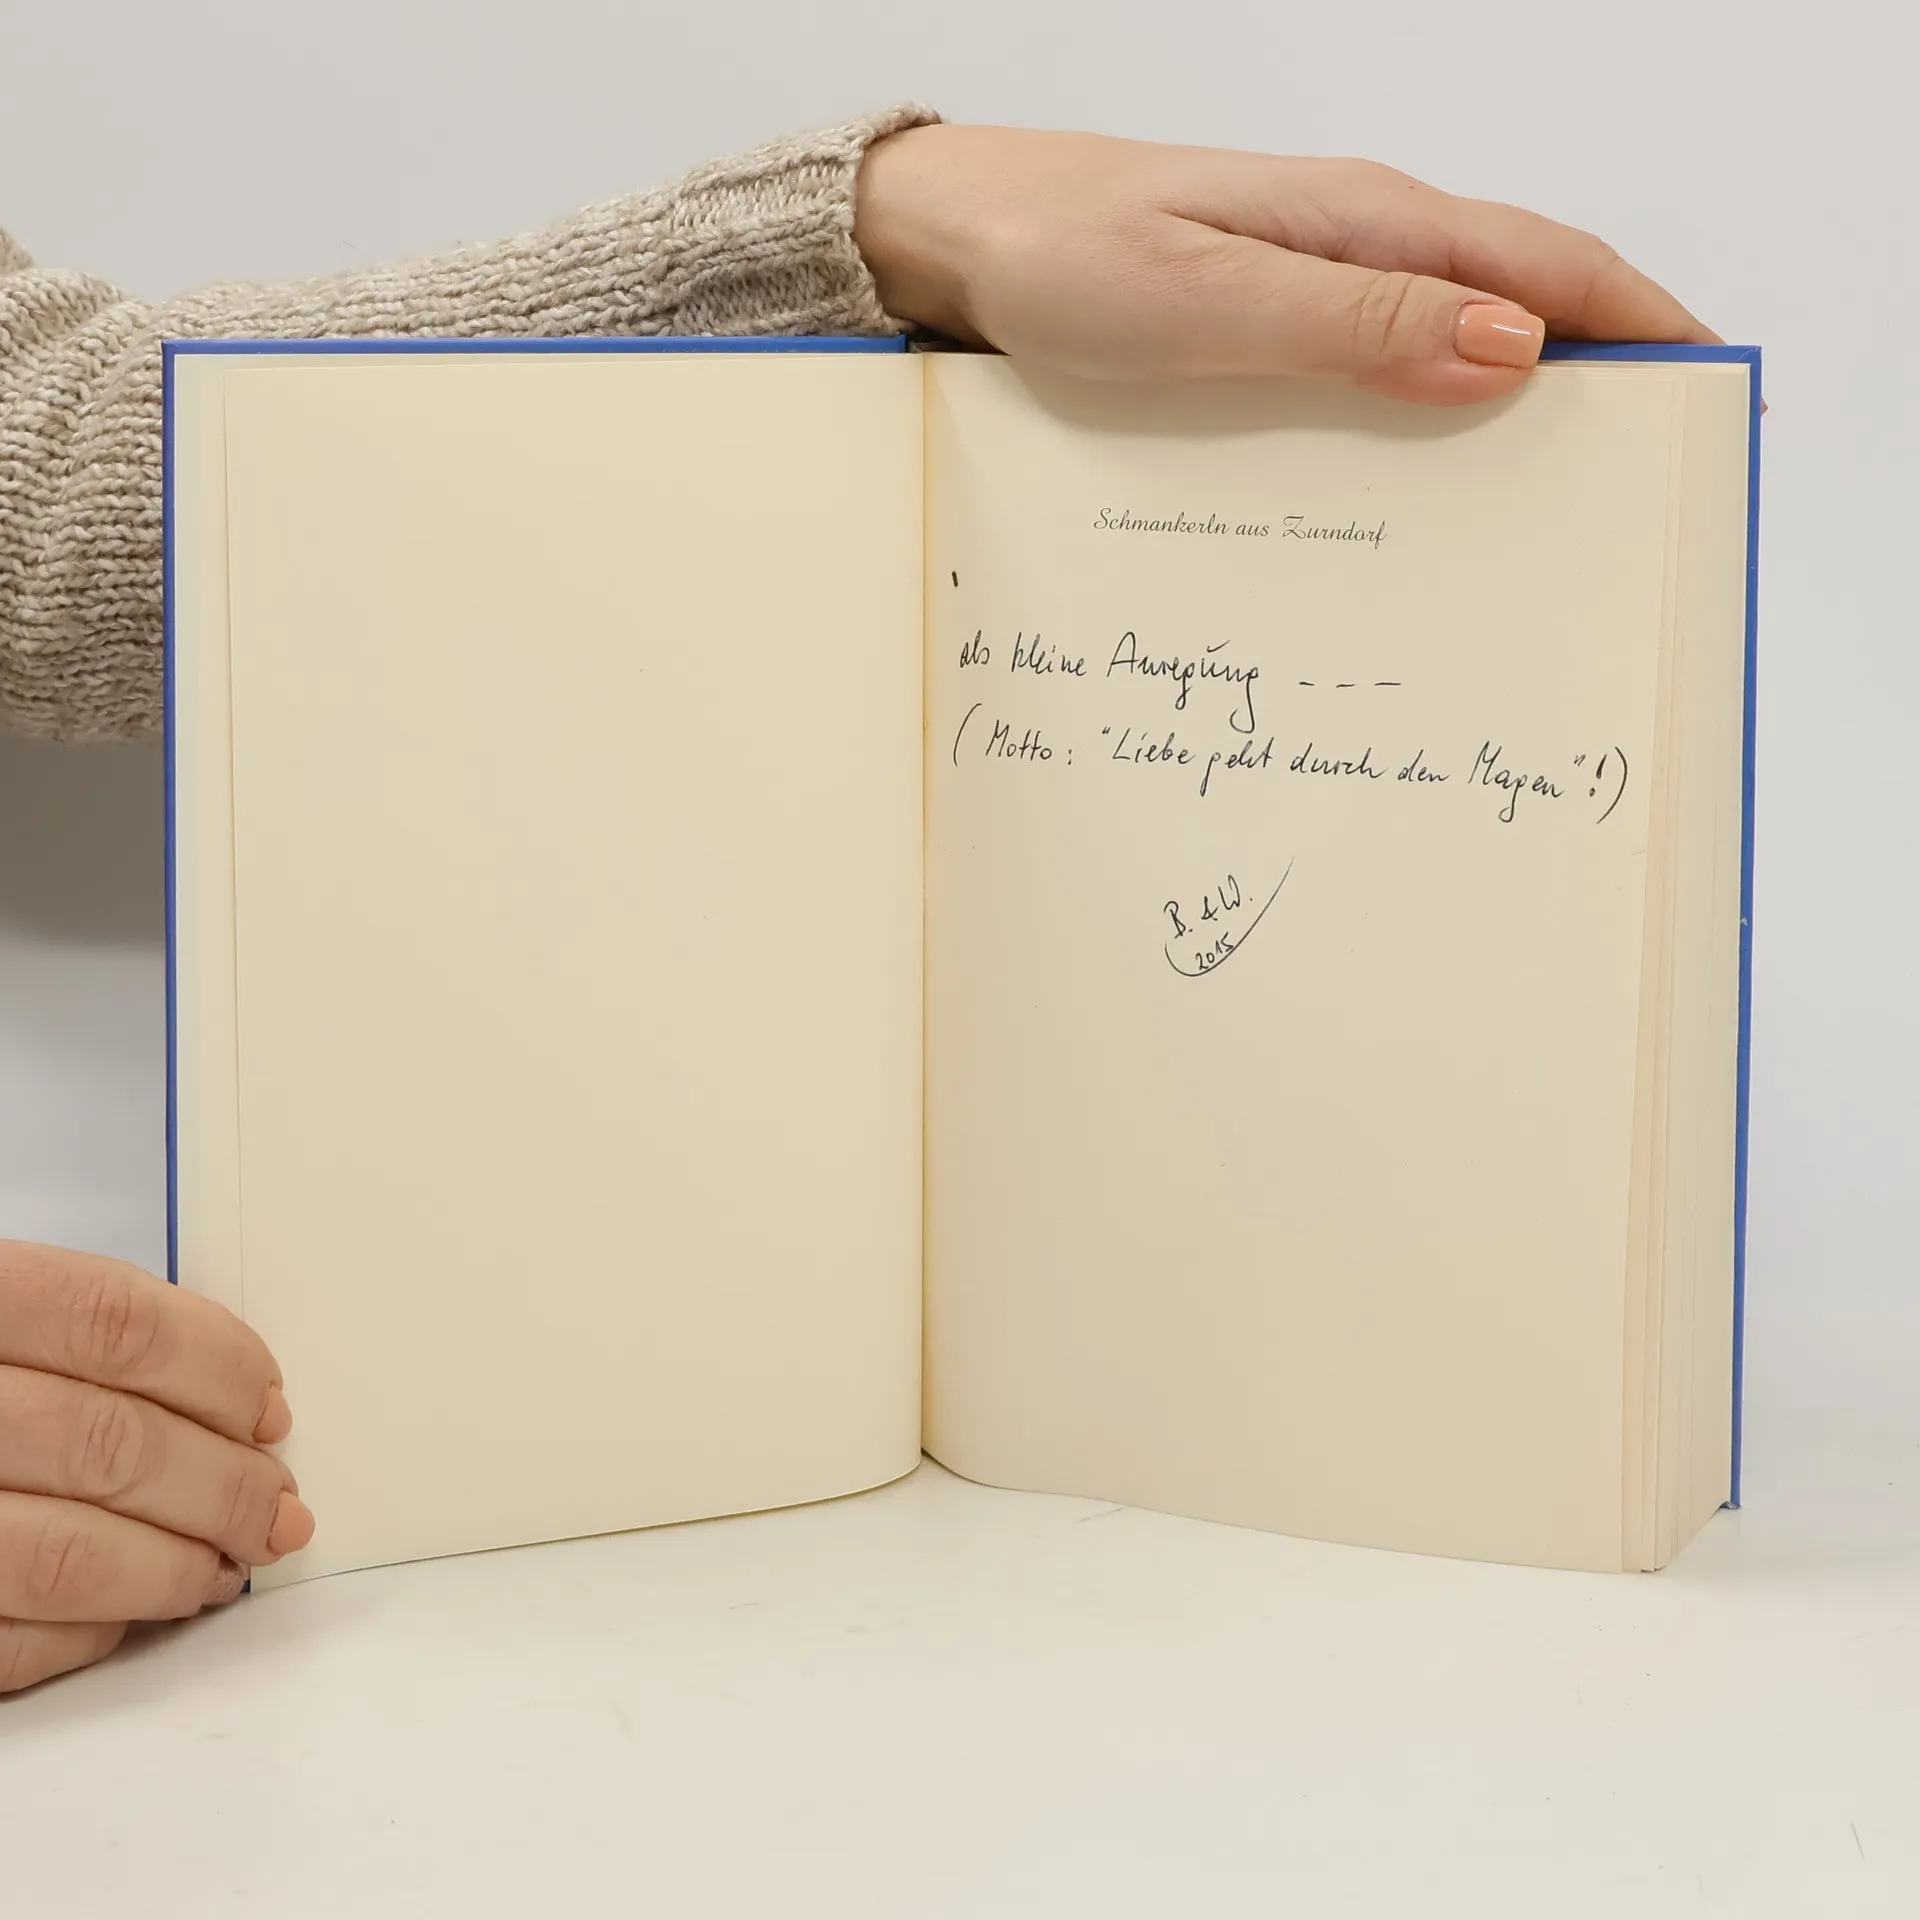 Schmankerln aus Zurndorf
als kleine Anregung _ _ _
(Motto: "Liebe geht durch den Magen"!)
B. & W.
2015